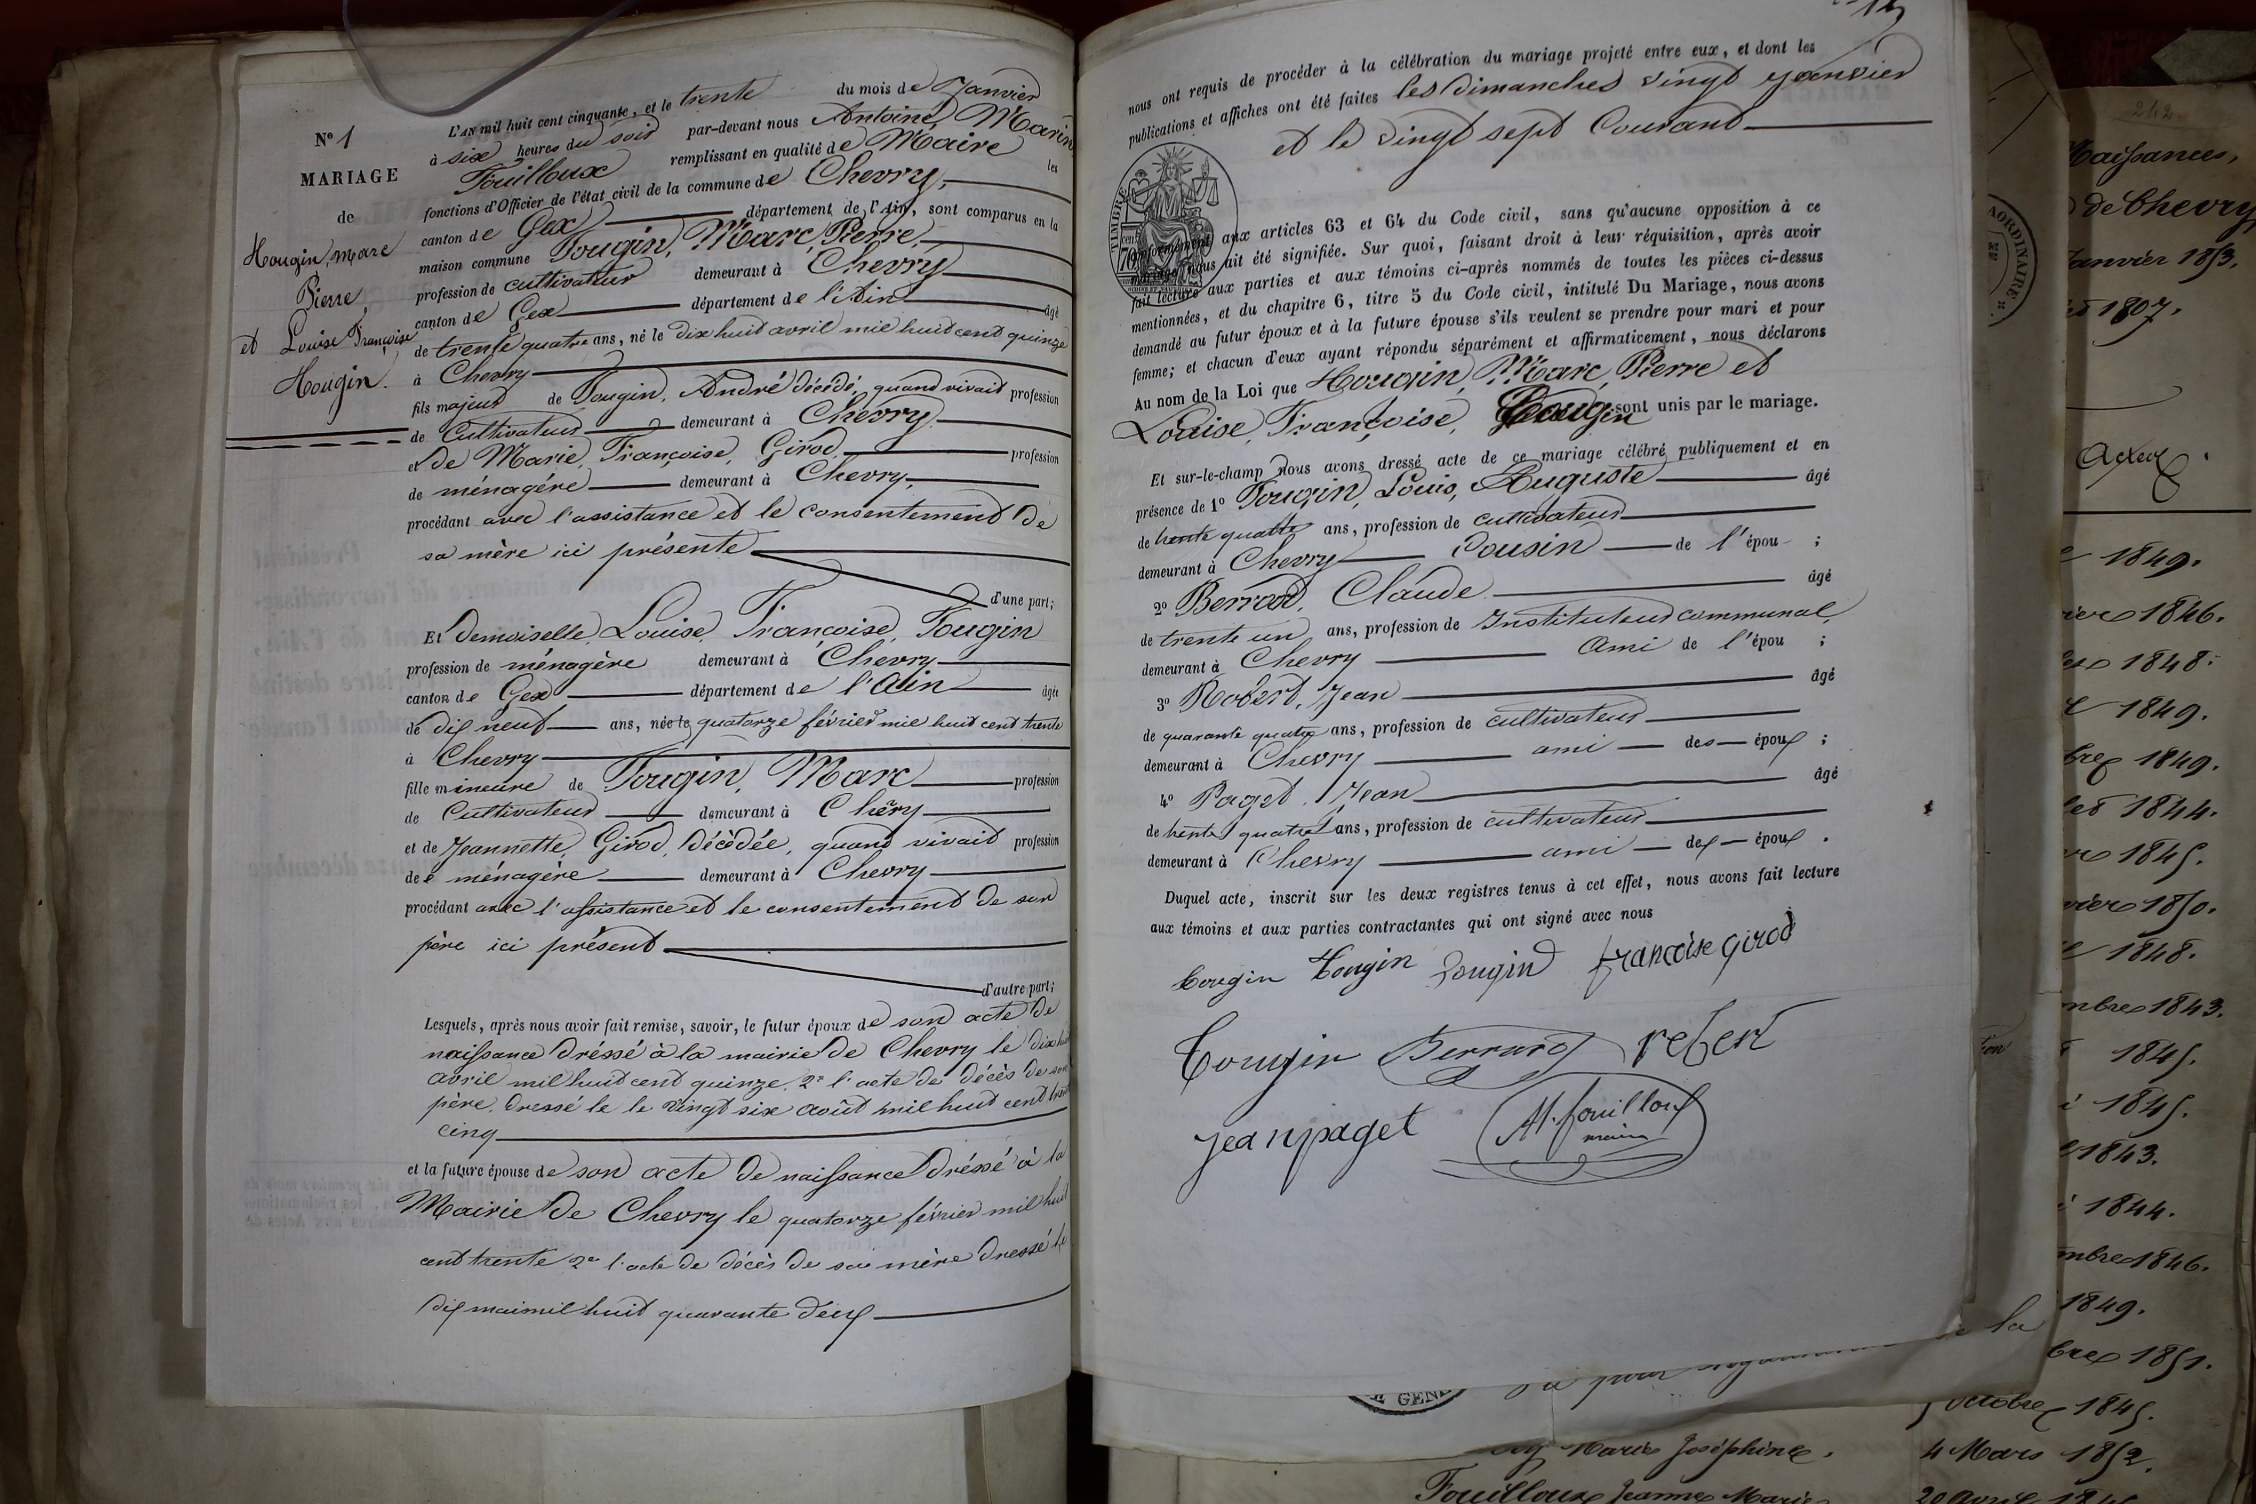 N° 1
MARIAGE
de
Hougin, Marc
Pierre,
et Louise Françoise
Hougin.
L'AN mil huit cent cinquante, et le trente du mois de Janvier
à six heures du soir par-devant nous Antoine Marin
Fouilloux remplissant en qualité de Maire les
fonctions d'Officier de l'état civil de la commune de Chevry,
canton de Gex département de l'Ain, sont comparus en la
maison commune Tougin, Marc, Pierre,
profession de cultivateur demeurant à Chevry
canton de Gex département de l'Ain âgé
de trente quatre ans, né le dix huit avril mil huit cent quinze
à Chevry
fils majeur de Tougin, André décédé, quand vivait profession
de Cultivateur demeurant à Chevry
et de Marie, Françoise, Girod profession
de ménagére demeurant à Chevry,
procédant avec l'assistance et le consentement de
sa mère ici présente
d'une part;
Et Demoiselle, Louise, Françoise, Tougin
profession de ménagère demeurant à Chevry
canton de Gex département de l'Ain âgée
de dix neuf ans, née le quatorze février mil huit cent trente
à Chevry
fille mineure de Tougin, Marc profession
de Cultivateur demeurant à Chevry
et de Jeannette, Girod, décédée, quand vivait profession
de ménagère demeurant à Chevry
procédant avec l'assistance et le consentement de son
père ici présent
d'autre part;
Lesquels, après nous avoir fait remise, savoir, le futur époux de son acte de
naissance dréssé à la mairie de Chevry le dix huit
avril mil huit cent quinze. 2° l'acte de décès de son
père, dressé le le vingt six août mil huit cent trente
cinq
et la future épouse de son acte de naissance dréssé à la
Mairie de Chevry le quatorze février mil huit
cent trente 2° l'acte de décès de sa mère dressé le
dix mai mil huit quarante deux
nous ont requis de procéder à la célébration du mariage projeté entre eux, et dont les
publications et affiches ont été faites les dimanches vingt janvier
et le vingt sept Courant
TIMBRE
70
conformément aux articles 63 et 64 du Code civil, sans qu'aucune opposition à ce
mariage nous ait été signifiée. Sur quoi, faisant droit à leur réquisition, après avoir
fait lecture aux parties et aux témoins ci-après nommés de toutes les pièces ci-dessus
mentionnées, et du chapitre 6, titre 5 du Code civil, intitulé Du Mariage, nous avons
demandé au futur époux et à la future épouse s'ils veulent se prendre pour mari et pour
femme; et chacun d'eux ayant répondu séparément et affirmativement, nous déclarons
Au nom de la Loi que Hougin, Marc, Pierre et
Louise, Françoise, Tougin sont unis par le mariage.
Et sur-le-champ nous avons dressé acte de ce mariage célébré publiquement et en
présence de 1° Tougin, Louis, Auguste âgé
de trente quatre ans, profession de cultivateur
demeurant à Chevry Cousin de l'épou ;
2° Berrard, Claude âgé
de trente un ans, profession de Instituteur communal,
demeurant à Chevry ami de l'épou ;
3° Robert, Jean âgé
de quarante quatre ans, profession de cultivateur
demeurant à Chevry ami des époux ;
4° Paget, Jean âgé
de trente quatre ans, profession de cultivateur
demeurant à Chevry ami dex époux .
Duquel acte, inscrit sur les deux registres tenus à cet effet, nous avons fait lecture
aux témoins et aux parties contractantes qui ont signé avec nous
tougin tougin Tougin françoise girod
Tougin Berrard robert
jean paget AM. fouilloux
maire
242
Naissances,
de Chevry
Janvier 1853.
1807.
AORDINAIRE
1849.
1846.
1848.
1849.
1849.
1844.
1845.
1850.
1848.
1843.
1845.
1845.
1843.
1844.
1846.
1849.
1851.
la
GEN
octobre 1845.
Marie Joséphine. 4 Mars 1852.
Fouilloux Jeanne Marie